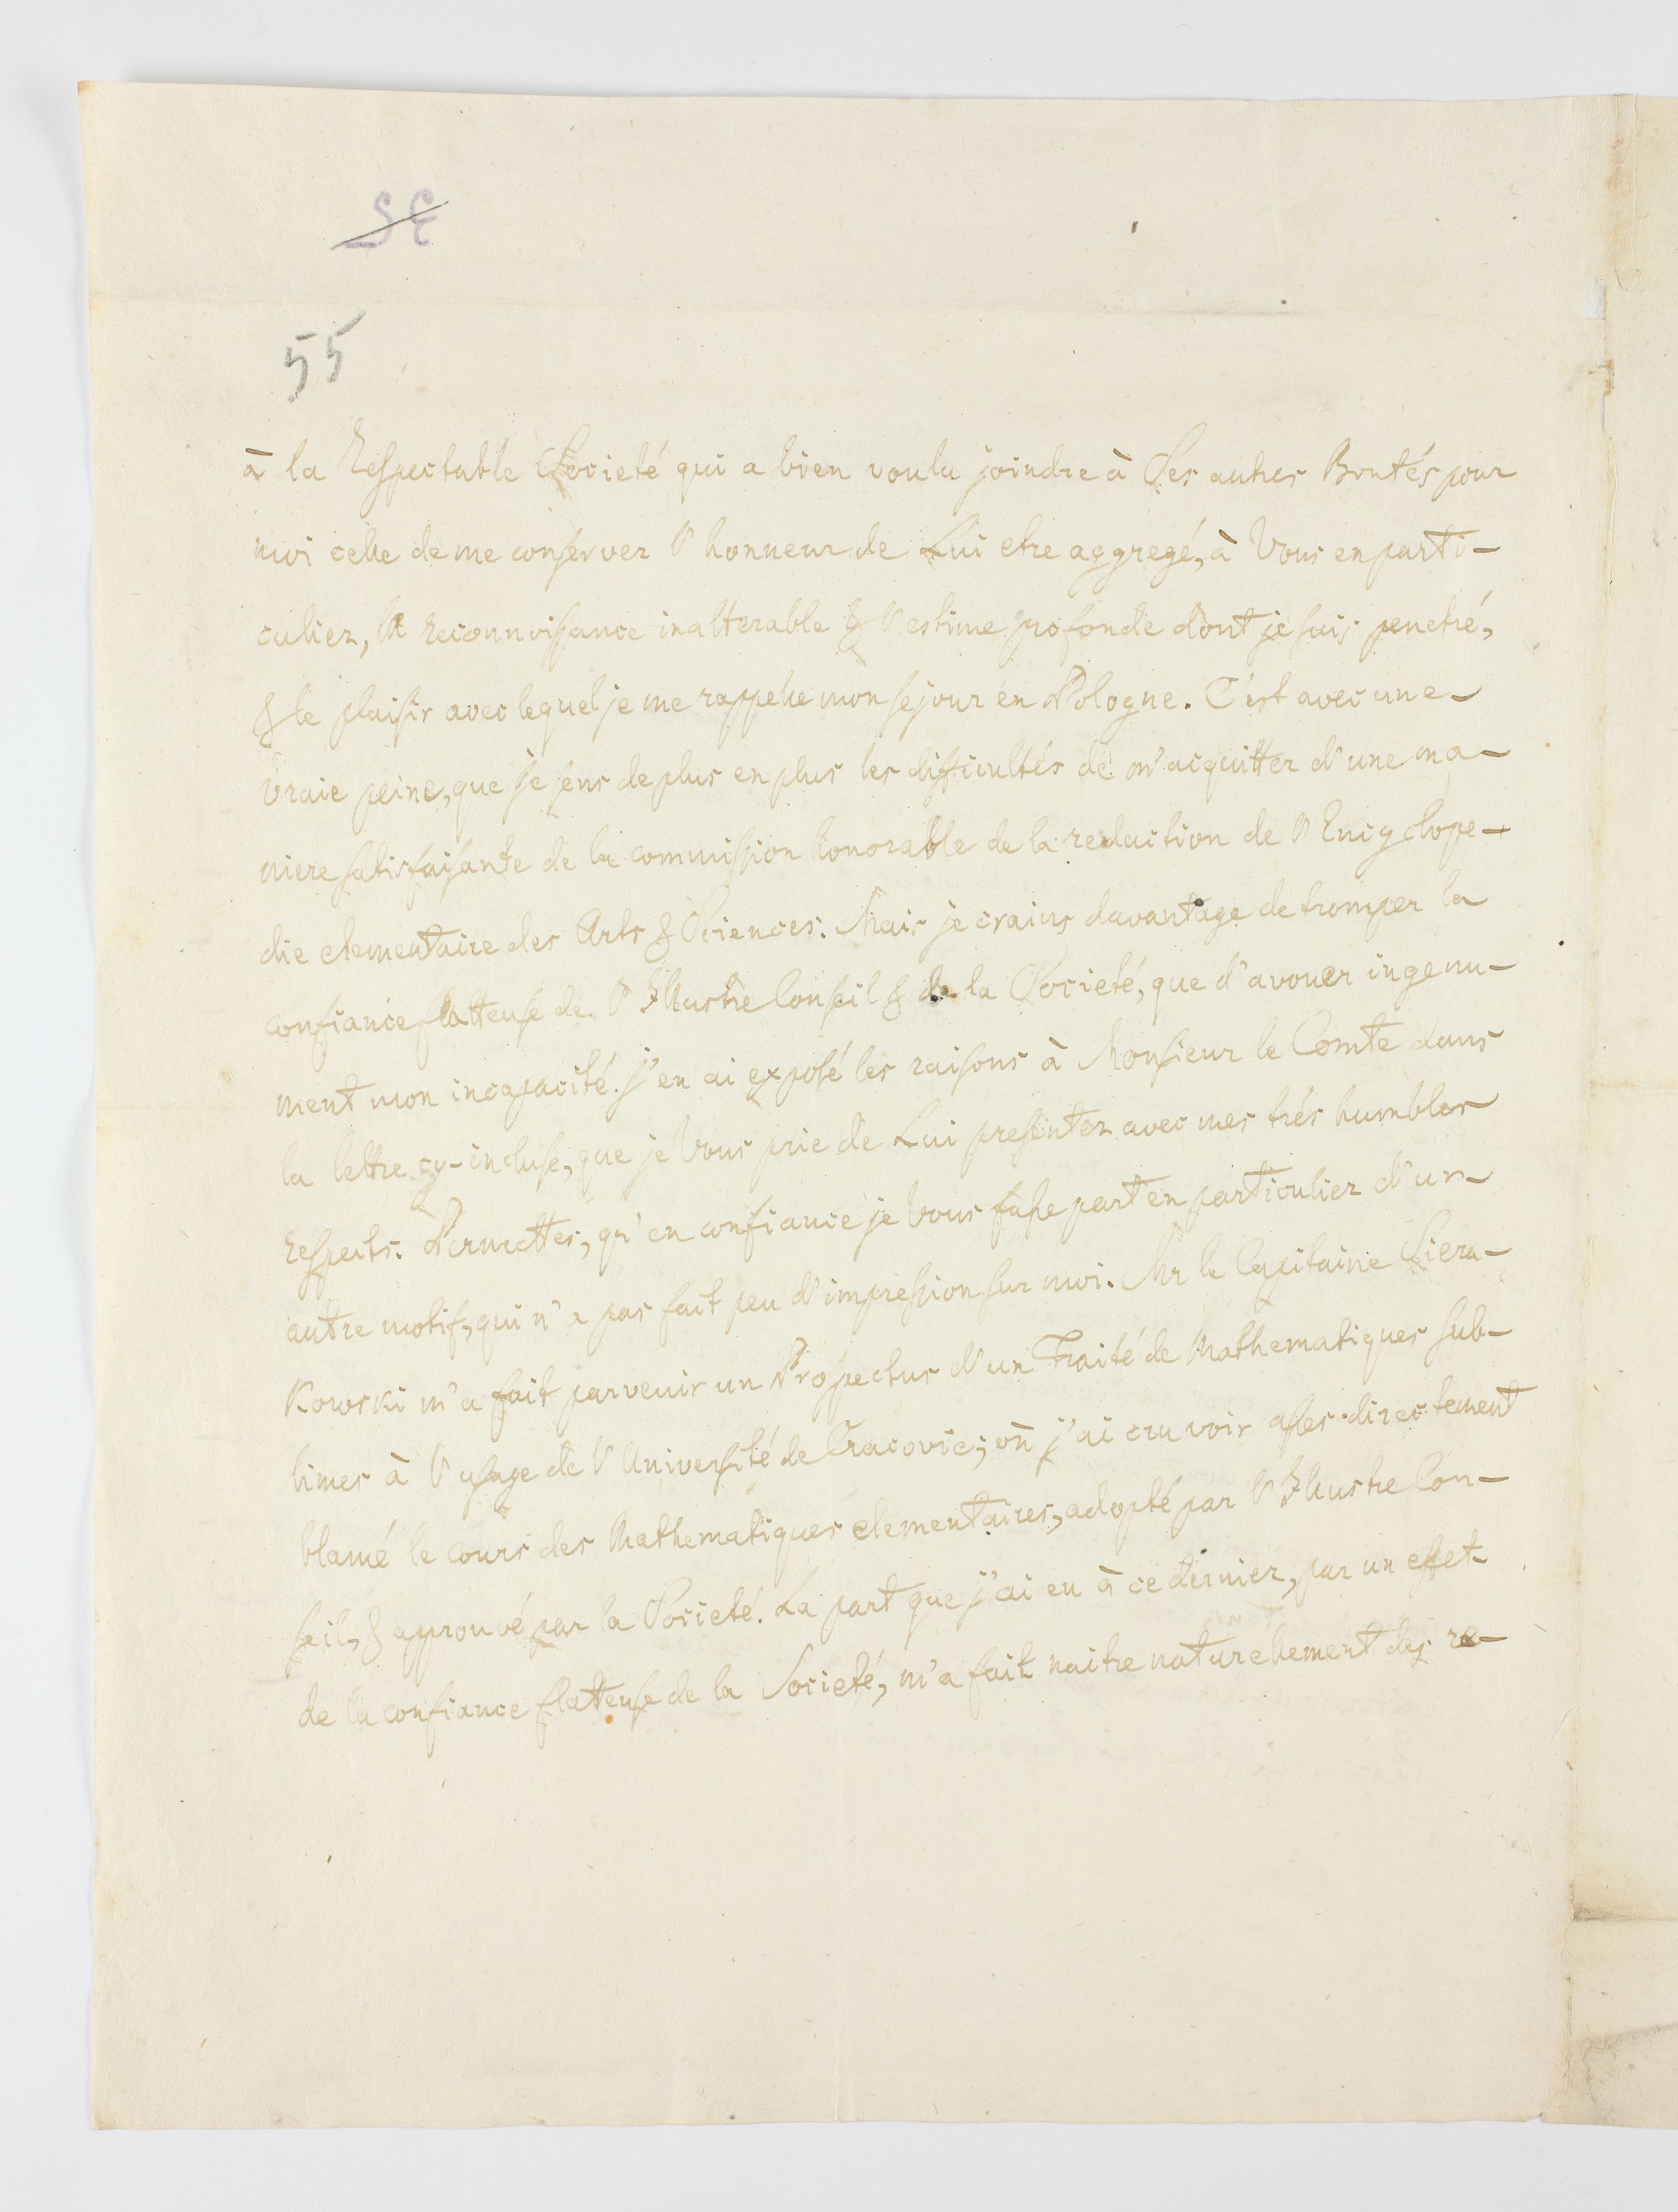 55
à la Respectable Societé qui a bien voulu joindre à Ses autres Bontés pour
moi celle de me conserver l'honneur de Lui etre aggregé, à Vous en parti-
culier, la reconnoissance inalterable & l'estime profonde dont je suis penetré,
& le plaisir avec lequel je me rappelle mon sejour en Pologne. C'est avec une
vraie peine, que je sens de plus en plus les difficultés de m'acquitter d'une ma-
niere satisfaisante de la commission honorable de la reduction de l'Encyclope-
die elementaire des Arts & Sciences. Mais je crains davantage de tromper la
confiance flatteuse de l'Illustre Conseil & de la Societé, que d'avouer ingenu-
ment mon incapacité. j'en ai exposé les raisons à Monsieur le Comte dans
la lettre cy-incluse, que je Vous prie de Lui presenter avec mes trés humbles
respects. Permettes, qu'en confiance je Vous fasse part en particulier d'un
autre motif, qui n'a pas fait peu d'impression sur moi. Mr le Capitaine Siera-
Kowski m'a fait parvenir un Prospectus d'un Traité de Mathematiques sub-
limes à l'usage de l'Université de Cracovie; où j'ai cru voir asses directement
blamé le cours des Mathematiques elementaires, adopté par l'Illustre Con-
seil, & approuvé par la Societé. La part que j'ai eu à ce dernier, par un effet
de la confiance flatteuse de la Societé, m'a fait naitre naturellement des re-